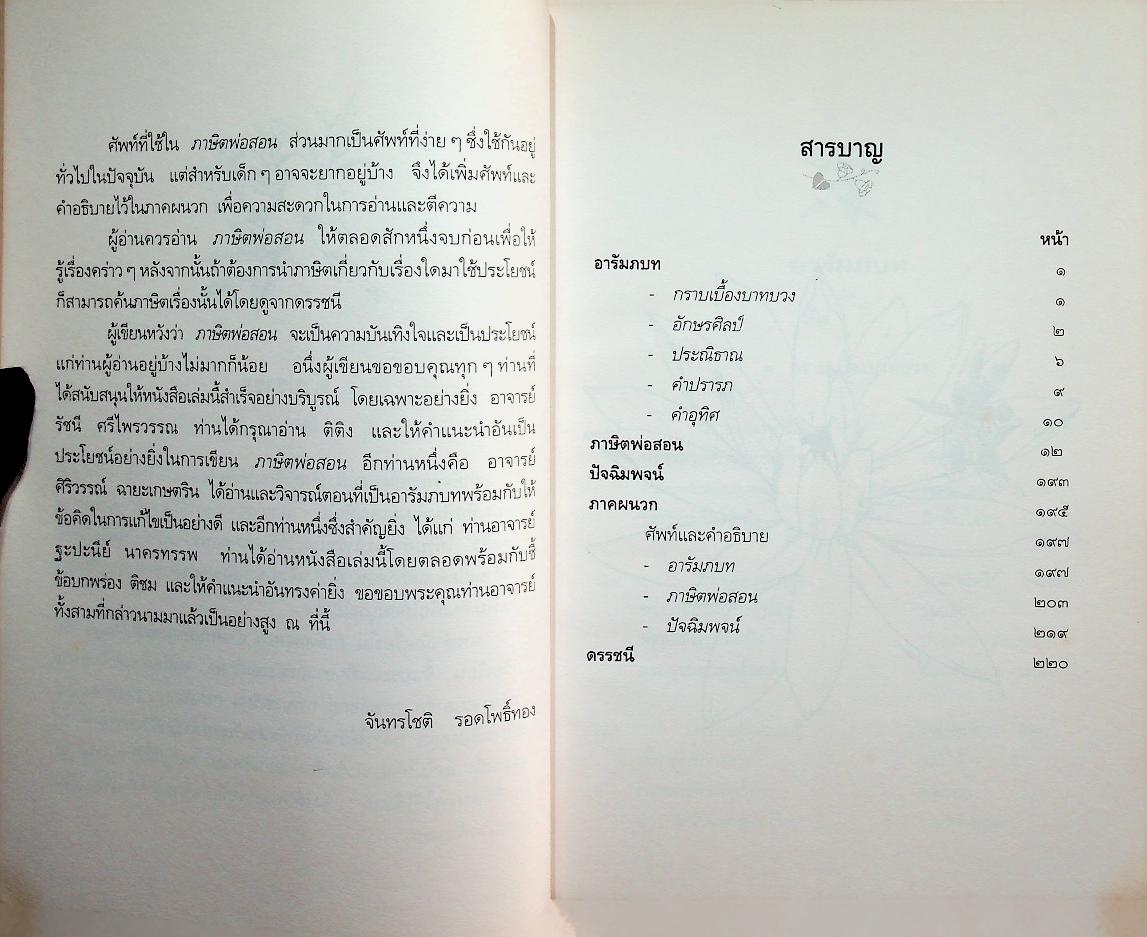 ศัพท์ที่ใช้ใน ภาษิตพ่อสอน ส่วนมากเป็นศัพท์ที่ง่าย ๆ ซึ่งใช้กันอยู่
ทั่วไปในปัจจุบัน แต่สำหรับเด็ก ๆ อาจจะยากอยู่บ้าง จึงได้เพิ่มศัพท์และ
คำอธิบายไว้ในภาคผนวก เพื่อความสะดวกในการอ่านและตีความ
ผู้อ่านควรอ่าน ภาษิตพ่อสอน ให้ตลอดสักหนึ่งจบก่อนเพื่อให้
รู้เรื่องคร่าว ๆ หลังจากนั้นถ้าต้องการนำภาษิตเกี่ยวกับเรื่องใดมาใช้ประโยชน์
ก็สามารถค้นภาษิตเรื่องนั้นได้โดยดูจากดรรชนี
ผู้เขียนหวังว่า ภาษิตพ่อสอน จะเป็นความบันเทิงใจและเป็นประโยชน์
แก่ท่านผู้อ่านอยู่บ้างไม่มากก็น้อย อนึ่งผู้เขียนขอขอบคุณทุก ๆ ท่านที่
ได้สนับสนุนให้หนังสือเล่มนี้สำเร็จอย่างบริบูรณ์ โดยเฉพาะอย่างยิ่ง อาจารย์
รัชนี ศรีไพรวรรณ ท่านได้กรุณาอ่าน ติติง และให้คำแนะนำอันเป็น
ประโยชน์อย่างยิ่งในการเขียน ภาษิตพ่อสอน อีกท่านหนึ่งคือ อาจารย์
ศิริวรรณ์ ฉายะเกษตริน ได้อ่านและวิจารณ์ตอนที่เป็นอารัมภบทพร้อมกับให้
ข้อคิดในการแก้ไขเป็นอย่างดี และอีกท่านหนึ่งซึ่งสำคัญยิ่ง ได้แก่ ท่านอาจารย์
ฐะปะนีย์ นาครทรรพ ท่านได้อ่านหนังสือเล่มนี้โดยตลอดพร้อมกับชี้
ข้อบกพร่อง ติชม และให้คำแนะนำอันทรงค่ายิ่ง ขอขอบพระคุณท่านอาจารย์
ทั้งสามที่กล่าวนามมาแล้วเป็นอย่างสูง ณ ที่นี้
จันทรโชติ รอดโพธิ์ทอง
สารบาญ
หน้า
อารัมภบท ๑
- กราบเบื้องบาทบวง ๑
- อักษรศิลป์ ๒
- ประณิธาณ ๖
- คำปรารภ ๙
- คำอุทิศ ๑๐
ภาษิตพ่อสอน ๑๒
ปัจฉิมพจน์ ๑๙๓
ภาคผนวก ๑๙๕
ศัพท์และคำอธิบาย ๑๙๗
- อารัมภบท ๑๙๗
- ภาษิตพ่อสอน ๒๐๓
- ปัจฉิมพจน์ ๒๑๙
ดรรชนี ๒๒๐